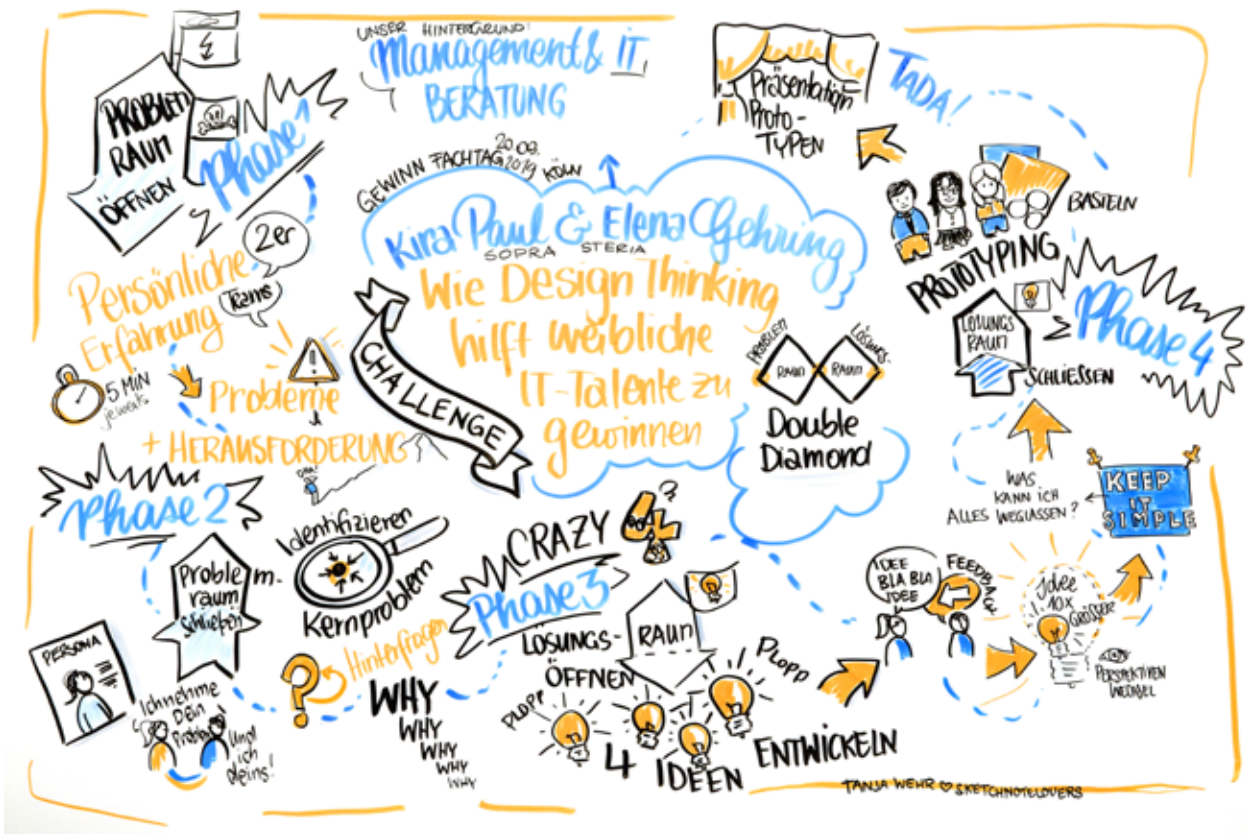 UNSER HINTERGRUND:
Management & IT
BERATUNG
GEWINN FACHTAG 20.09.2019 KÖLN
Kira Paul & Elena Gehring
SOPRA STERIA
Wie Design Thinking
hilft weibliche
IT-Talente zu
gewinnen
CHALLENGE
PROBLEM
RAUM
LÖSUNGS
RAUM
Double
Diamond
PROBLEM
RAUM
ÖFFNEN
Phase 1
2er
Teams
Persönliche
Erfahrung
5 MIN
jeweils
Probleme
+ HERAUSFORDERUNG
Phase 2
Problem-
raum
schließen
Identifizieren
Kernproblem
PERSONA
Ich nehme
Dein
Problem
Und
ich
deins!
Hinterfragen
WHY
WHY
WHY
WHY
WHY
CRAZY 4
Phase 3
LÖSUNGS-
RAUM
ÖFFNEN
PLOPP
PLOPP
4 IDEEN ENTWICKELN
IDEE
BLA BLA
IDEE
FEEDBACK
Idee
10x
GRÖSSER
PERSPEKTIVEN
WECHSEL
KEEP
IT
SIMPLE
WAS
KANN ICH
ALLES WEGLASSEN?
Phase 4
LÖSUNGS
RAUM
SCHLIESSEN
PROTOTYPING
BASTELN
TADA!
Präsentation
Proto-
TYPEN
TANJA WEHR ♡ SKETCHNOTELOVERS